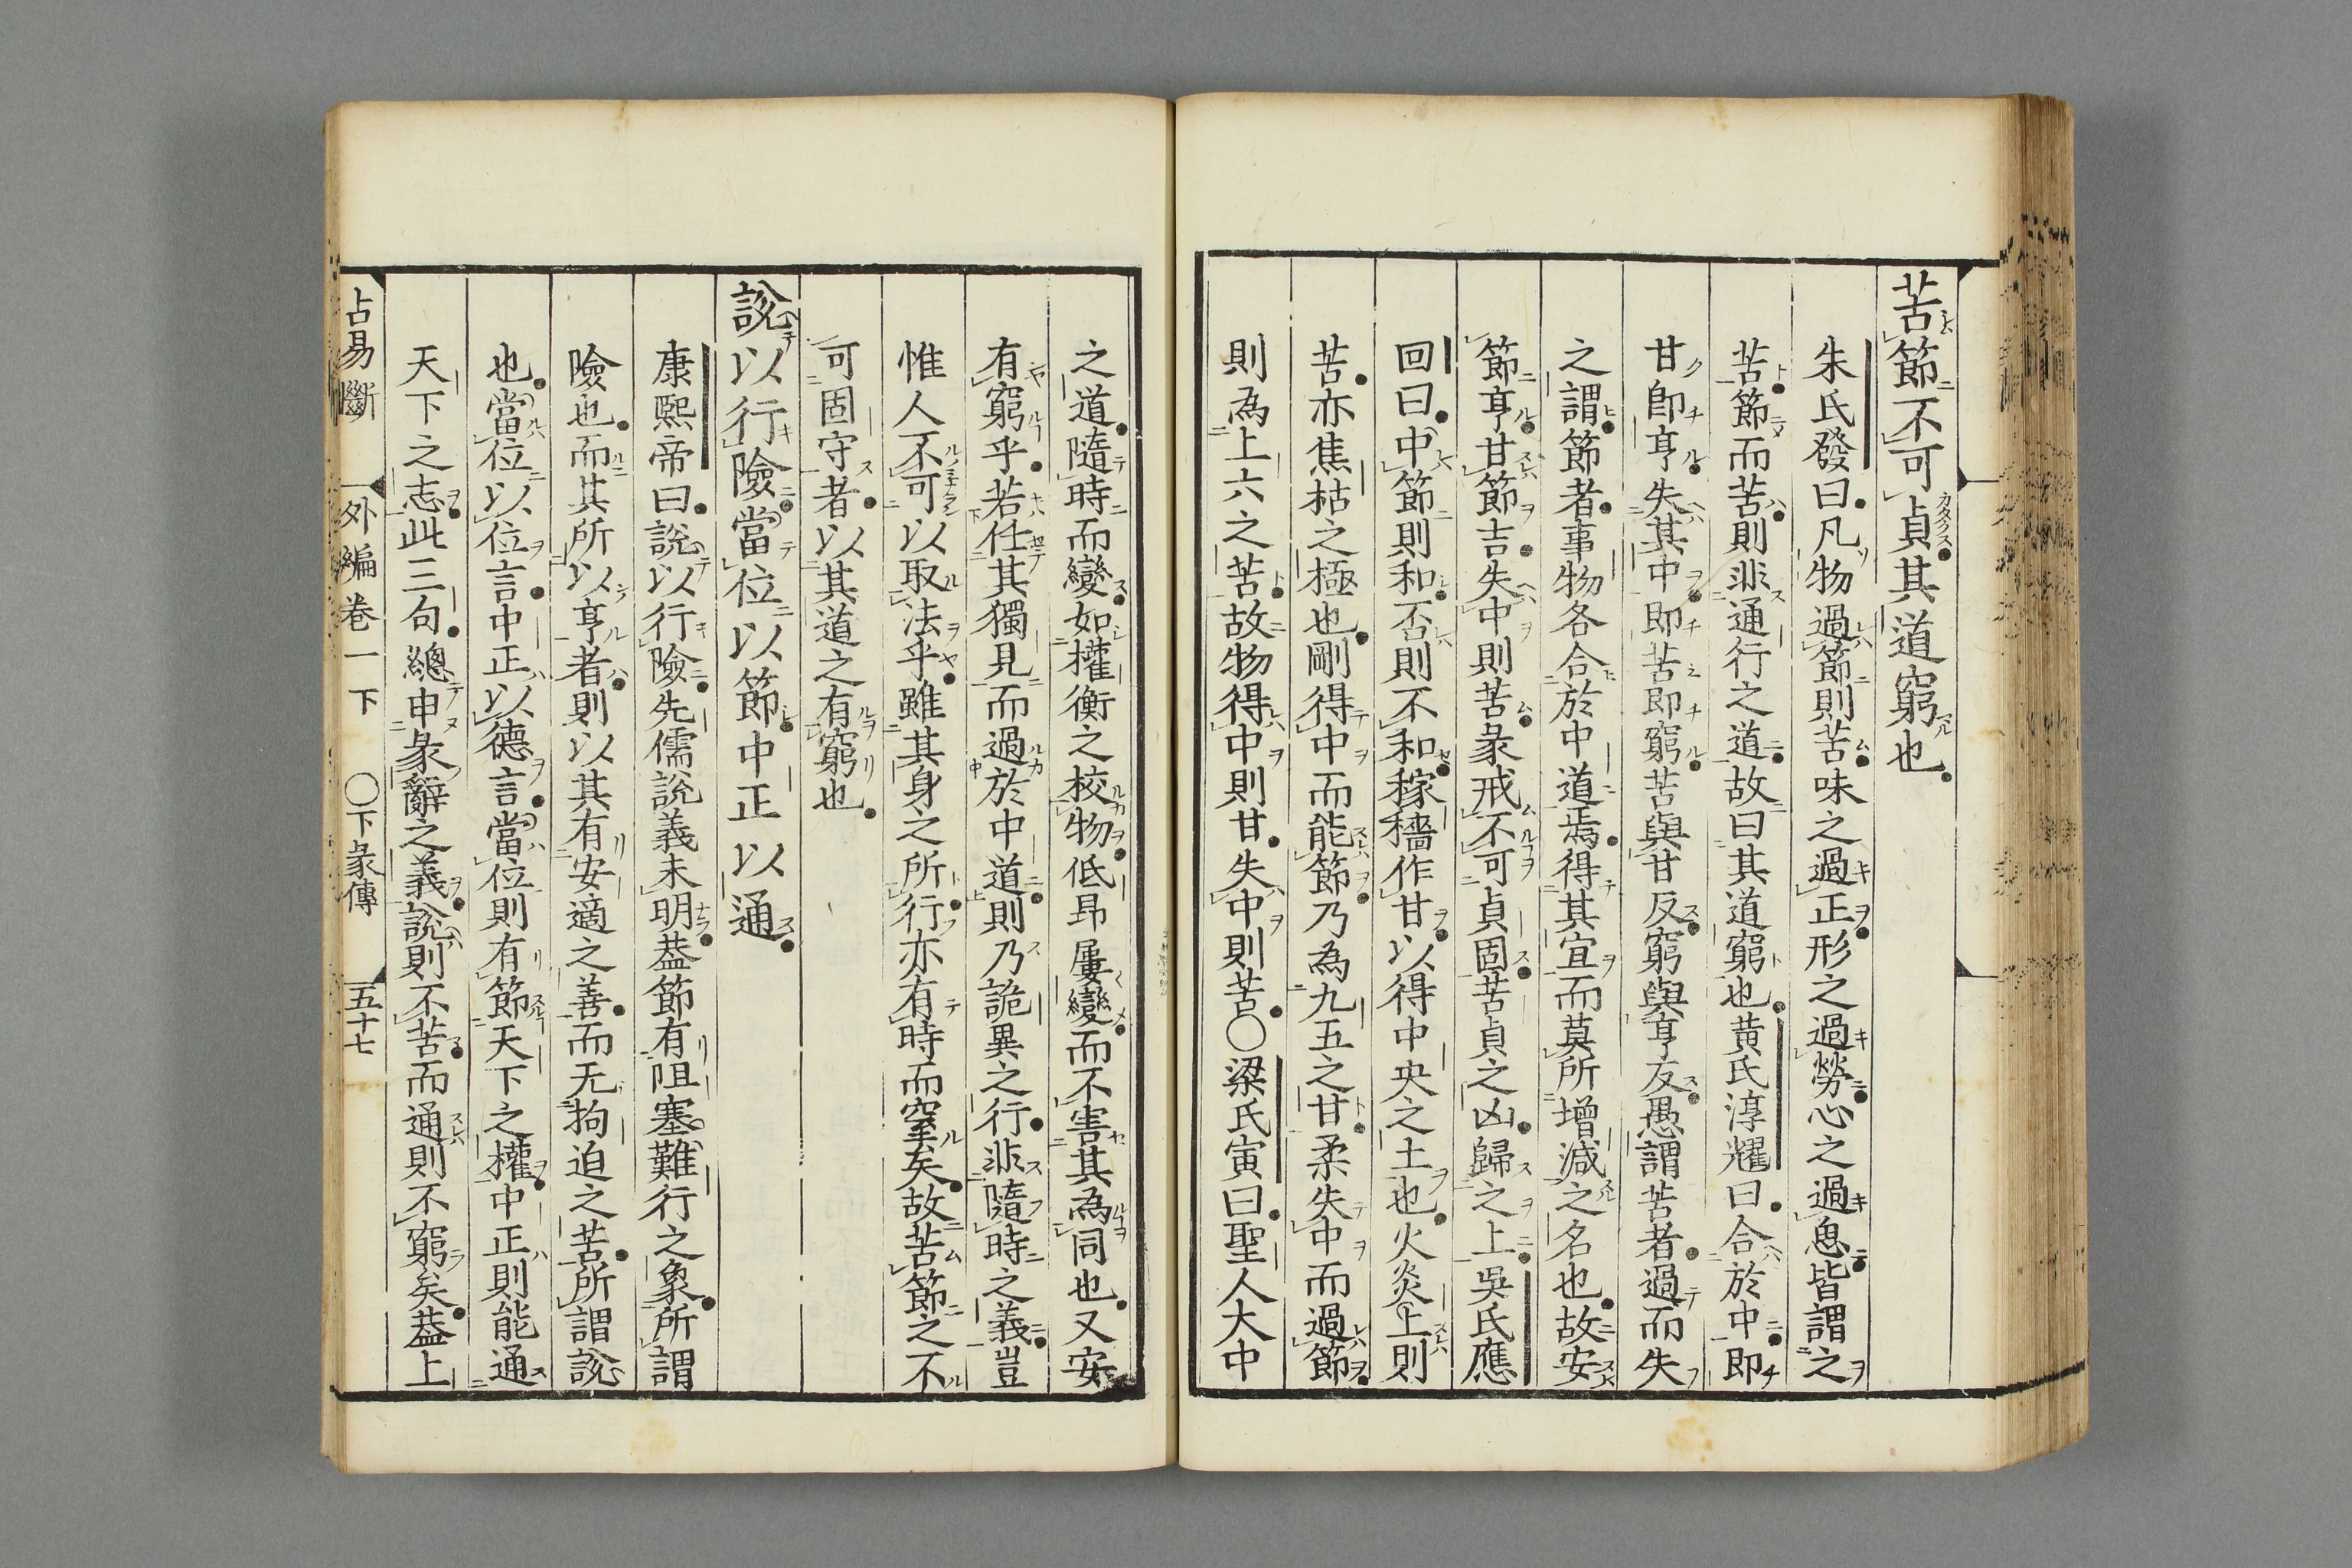 苦節不可貞其道窮也
朱氏發曰凡物過節則苦味之過正形之過勞心之過思皆謂之
苦節而苦則非通行之道故曰其道窮也黃氏淳耀曰合於中即
甘即亨失其中即苦即窮苦與甘反窮與亨反愚謂苦者過而失
之謂節者事物各合於中道焉得其宜而莫所增減之名也故安
節亨甘節吉失中則苦彖戒不可貞固苦貞之凶歸之上吳氏應
回曰中節則和否則不和稼穡作甘以得中央之土也火炎上則
苦亦焦枯之極也剛得中而能節乃為九五之甘柔失中而過節
則為上六之苦故物得中則甘失中則苦〇梁氏寅曰聖人大中
之道隨時而變如權衡之校物低昻屢變而不害其為同也又安
有窮乎若任其獨見而過於中道則乃詭異之行非隨時之義豈
惟人不可以取法乎雖其身之所行亦有時而窒矣故苦節之不
可固守者以其道之有窮也
說以行險當位以節中正以通
康熙帝曰說以行險先儒說義未明葢節有阻塞難行之象所謂
險也而其所以亨者則以其有安適之善而无拘迫之苦所謂說
也當位以位言中正以德言當位則有節天下之權中正則能通
天下之志此三句總申彖辭之義說則不苦而通則不窮矣葢上
占易斷 外編卷一下 〇下彖傳 五十七